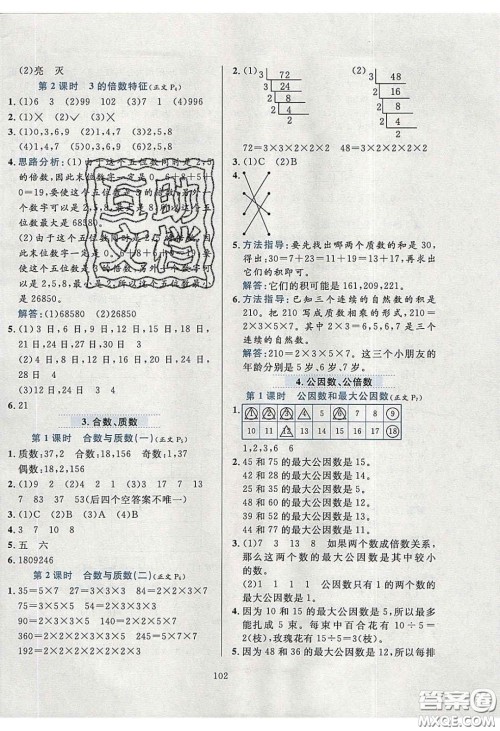 (2)亮 灭
第2课时 3的倍数特征(正文P₄)
1.(1)6 3 (2)99 102 (3)7 1 (4)996
2.(1)× (2)✓ (3)×
3.(1)0,3,6,9 (2)1,4,7 (3)0,3,6,9
(4)1,4,7 (5)2,5,8
4.思路分析:(1)由于这个五位数同时是2,5
的倍数,因此末位数字一定是0
=19,要使这个五位数是3的倍数,
大是68380。
(2)由于这个五位数同时是2,5的倍数,因
此末位数字一定是0
数是3的倍数
是26850。
解答:(1)68580 (2)26850
5.(1)3日,6日,9日,12日,15日,18日,21
日,24日,27日,30日
(2)4日,8日,12日,16日,20日,24日,28日
(3)12日,24日 3 4
6.21
3.合数、质数
第1课时 合数与质数(一)(正文P₅)
1.质数:37,2 合数:18,156 奇数:1,37
偶数:18,2,156
2.(1)29 (2)2 4 (3)1 2 (4)7 17
13 83 37 53(后四个空答案不唯一)
3.(1)C (2)D (3)C (4)B (5)B
4.3 7 10 8
5.五 六
6.1809246
第2课时 合数与质数(二)(正文P₆)
1.35=5×7 27=3×3×3 42=2×3×7
60=2×2×3×5 84=2×2×3×7
90=2×3×3×5 140=2×2×5×7
360=2×2×2×3×3×5
192=2×2×2×2×2×2×3
2.(1)
3 72
3 24
2 8
2 4
2
(2)
3 48
2 16
2 8
2 4
2
72=3×3×2×2×2 48=3×2×2×2×2
3.(1)C (2)B
4.
5.方法指导:要先找出哪两个质数的和是30,
得出:30=7+23=11+19=13+17,再
计算它们的积即可。
解答:它们的积可能是161,209,221。
6.方法指导:已知三个连续的自然数的积是
210。把210写成质数相乘的形式。
210=2×3×5×7,2×3=6,5,6,7是三个
连续的自然数。
解答:210=2×3×5×7。这三个小朋友的
年龄分别是5岁,6岁,7岁。
4.公因数、公倍数
第1课时 公因数和最大公因数(正文P₈)
1.
1 2 3 4 5 6 7 8 9
10 11 12 13 14 15 16 17 18
1,2,3,6 6
2.45和75的最大公因数是15。
45和60的最大公因数是15。
60和75的最大公因数是15。
3.(1)7 13 18 如果两个数成倍数关系,
那么这两个数的最大公因数就是其中较小
的数。
(2)1 1 1 公因数只有1的两个数,最
大公因数是1。
4.因为10和15的最大公因数是5,所以最多
能扎成5束。每束中百合花有10÷5=
2(枝),玫瑰花有15÷5=3(枝)。
5.因为48和36的最大公因数是12,所以每排
102
互助
文档
答案圈
MXQE.COM